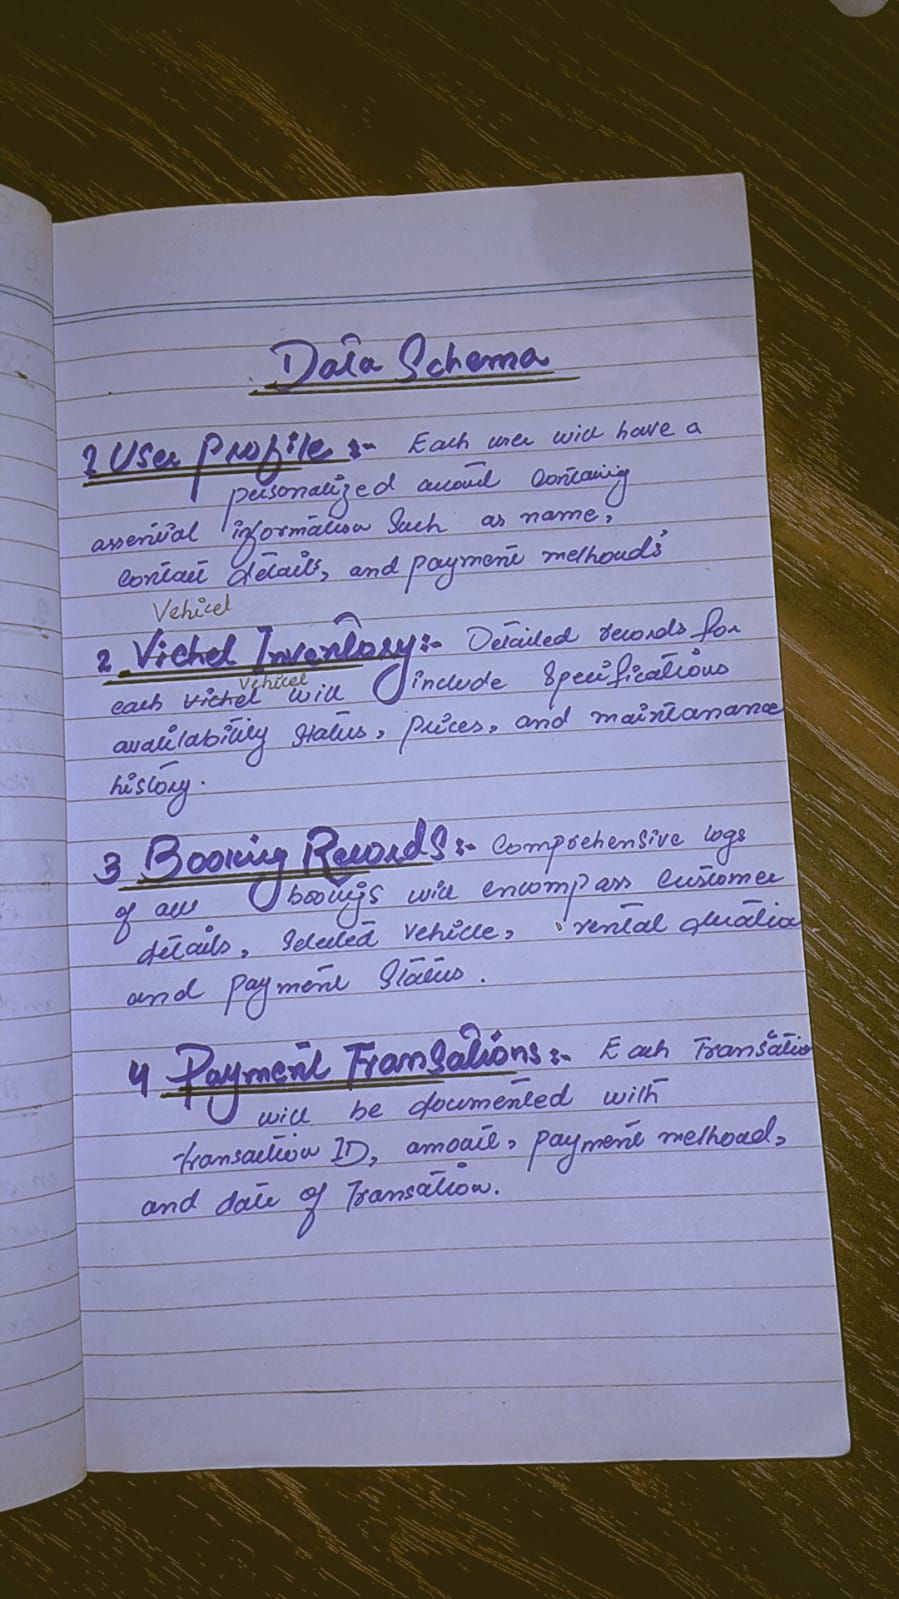 Data Schema
1 User Profile :- Each user will have a
personalized account containing
assential information Such as name,
contact details, and payment methoud's
Vehicel
2 Vichel Inventory:- Detailed records for
Vehicel
each vichel will include Specifications
availability status, prices, and maintanance
history.
3 Booking Records:- comprehensive logs
of all bookings will encompass customer
details, Selected vehicle, rental duration
and payment Status.
4 Payment Transations:- Each Transatio
will be documented with
transaction ID, amount, payment methoad,
and date of Transation.